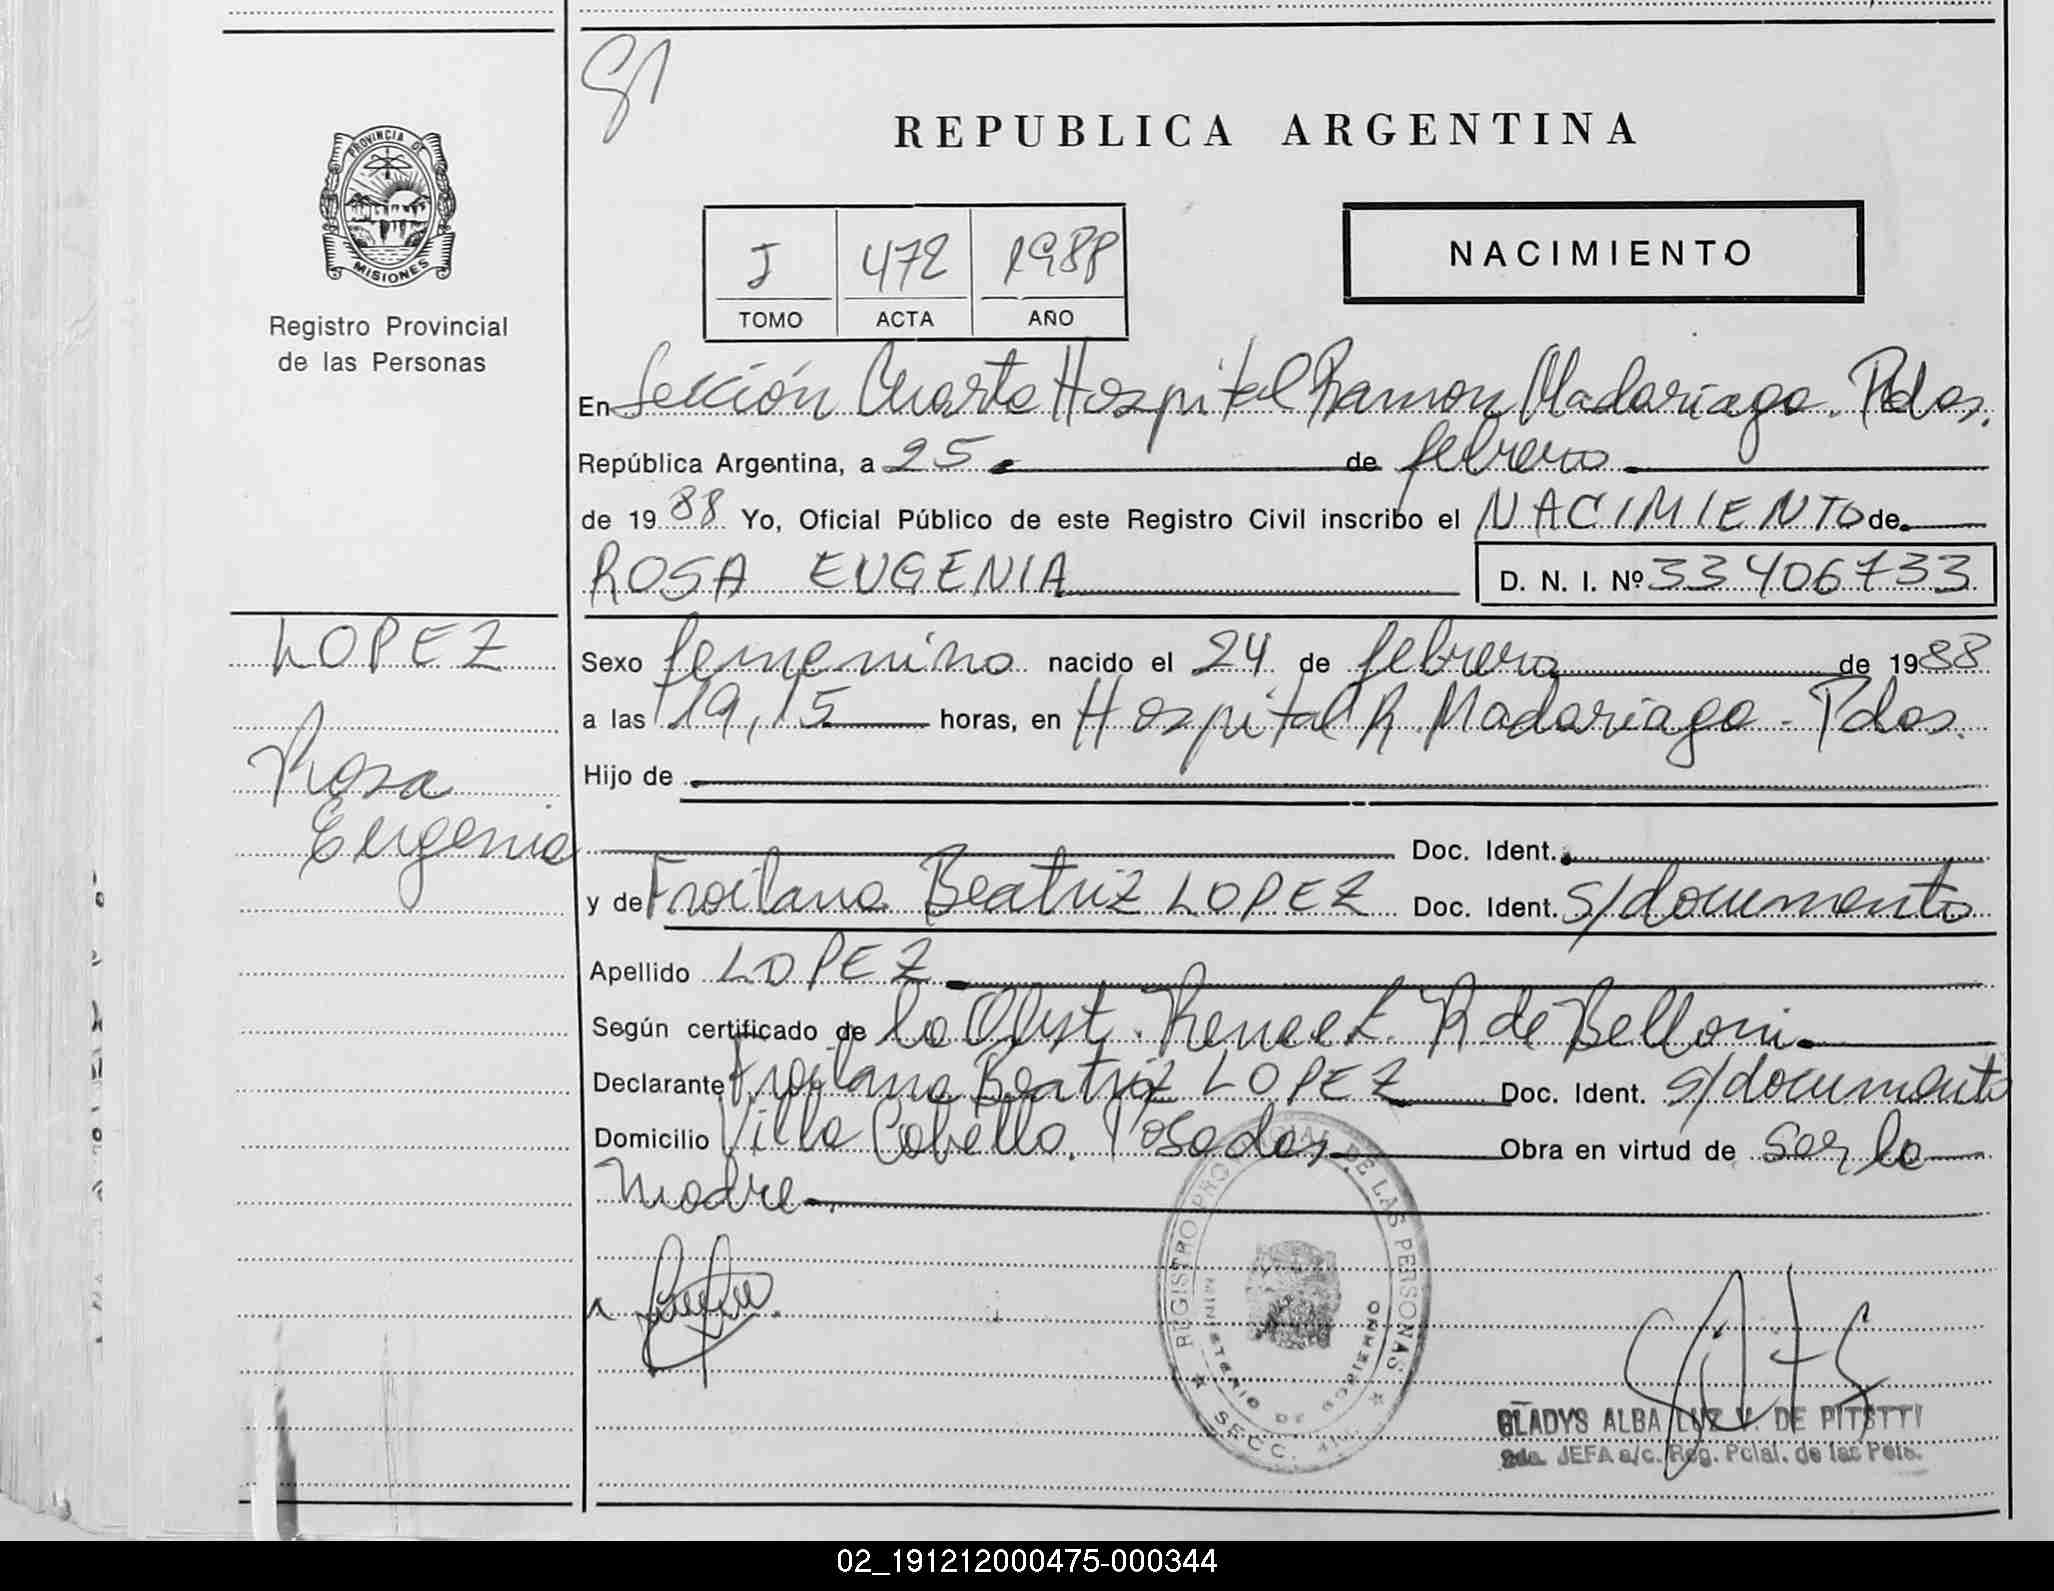 REPUBLICA ARGENTINA
PROVINCIA DE
MISIONES
Registro Provincial
de las Personas
J 472 1988
TOMO ACTA AÑO
NACIMIENTO
En Sección Cuarta Hospital Ramon Madariaga. Pdas.
República Argentina, a 25 de febrero
de 1988 Yo, Oficial Público de este Registro Civil inscribo el NACIMIENTO de
ROSA EUGENIA D. N. I. Nº 33406733
LOPEZ
Rosa
Eugenia
Sexo femenino nacido el 24 de febrero de 1988
a las 19,15 horas, en Hospital R. Madariaga - Pdas.
Hijo de
Doc. Ident.
y de Froilana Beatriz LOPEZ Doc. Ident. s/documento
Apellido LOPEZ
Según certificado de la Obst. Renee E. R de Belloni
Declarante Froilana Beatriz LOPEZ Doc. Ident. s/documento
Domicilio Villa Cabello. Posadas Obra en virtud de ser la
madre
REGISTRO PROVINCIAL DE LAS PERSONAS
MINISTERIO DE GOBIERNO
SECC.
GLADYS ALBA LUZ V. DE
2da. JEFA a/c. Reg. Pcial. de las Pers.
02_191212000475-000344